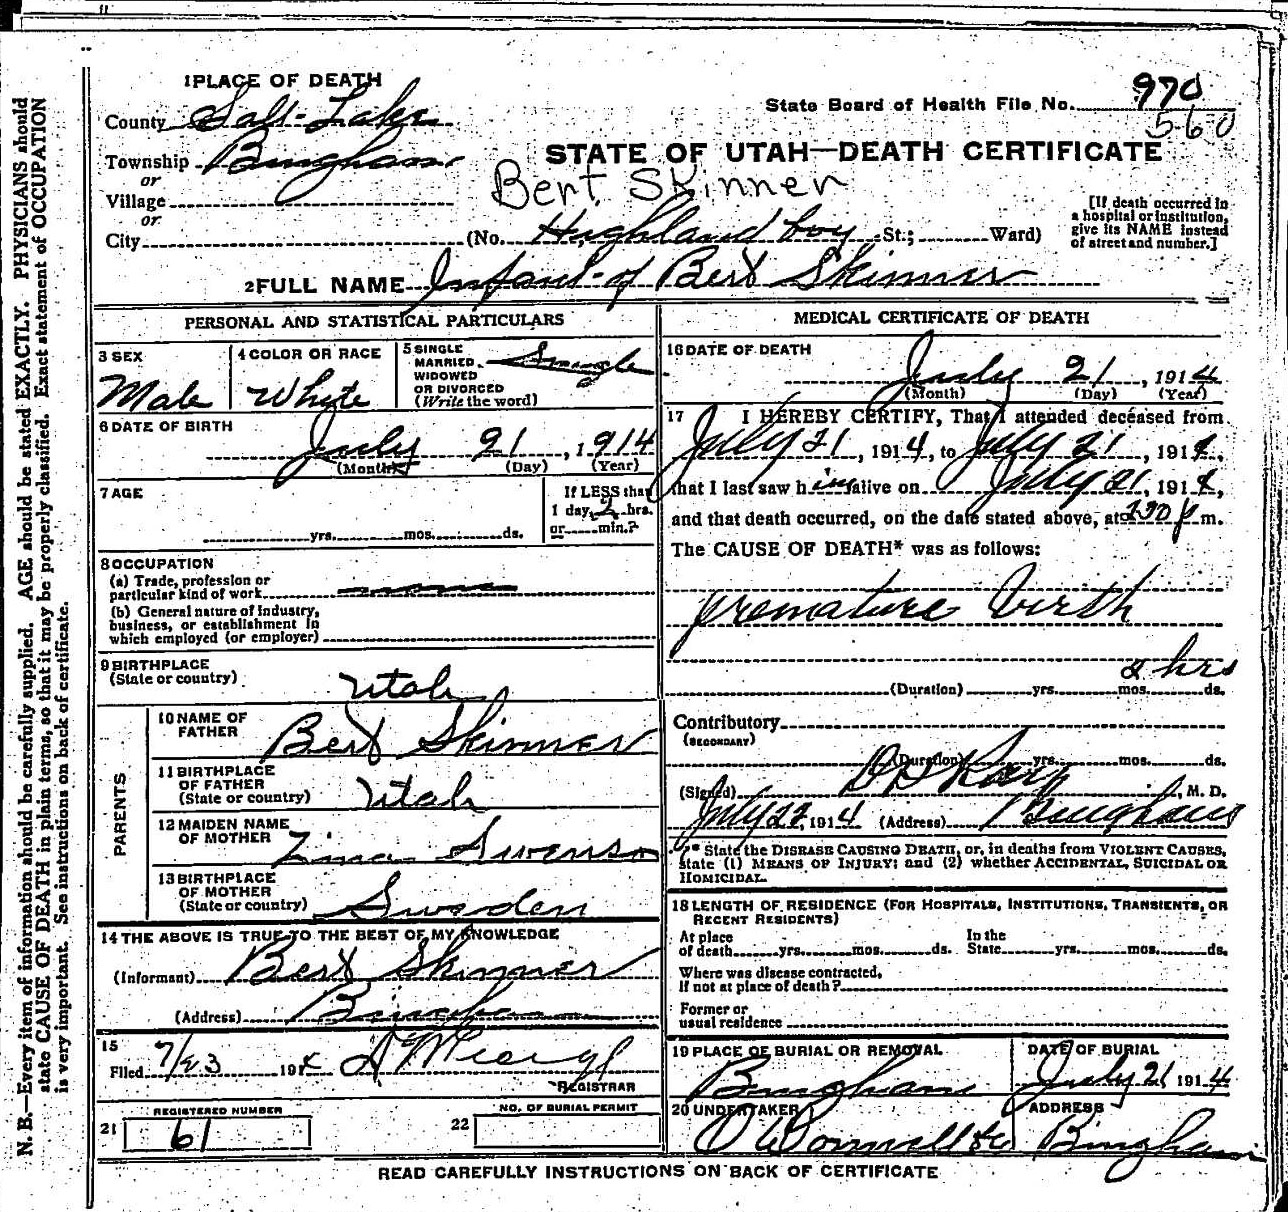 1 PLACE OF DEATH
County Salt-Lake
Township Bingham
or
Village
or
City
State Board of Health File No. 970
560
STATE OF UTAH—DEATH CERTIFICATE
Bert Skinner
(No. Highland boy St.; Ward)
[If death occurred in
a hospital or institution,
give its NAME instead
of street and number.]
2 FULL NAME Infant of Bert Skinner
PERSONAL AND STATISTICAL PARTICULARS
3 SEX
Male
4 COLOR OR RACE
Whyte
5 SINGLE
MARRIED
WIDOWED
OR DIVORCED
(Write the word)
Single
6 DATE OF BIRTH
July 21, 1914
(Month) (Day) (Year)
7 AGE
yrs. mos. ds.
If LESS than
1 day, 2 hrs.
or min.?
8 OCCUPATION
(a) Trade, profession or
particular kind of work none
(b) General nature of industry,
business, or establishment in
which employed (or employer)
9 BIRTHPLACE
(State or country)
Utah
PARENTS
10 NAME OF
FATHER
Bert Skinner
11 BIRTHPLACE
OF FATHER
(State or country)
Utah
12 MAIDEN NAME
OF MOTHER
Zina Swenson
13 BIRTHPLACE
OF MOTHER
(State or country)
Sweden
14 THE ABOVE IS TRUE TO THE BEST OF MY KNOWLEDGE
(Informant) Bert Skinner
(Address) Bingham
15
Filed 7/23 1914
REGISTRAR
REGISTERED NUMBER
21 61
NO. OF BURIAL PERMIT
22
MEDICAL CERTIFICATE OF DEATH
16 DATE OF DEATH
July 21, 1914
(Month) (Day) (Year)
17 I HEREBY CERTIFY, That I attended deceased from
July 21, 1914, to July 21, 1914,
that I last saw him alive on July 21, 1914,
and that death occurred, on the date stated above, at 230 p m.
The CAUSE OF DEATH* was as follows:
premature birth
2 hrs
(Duration) yrs. mos. ds.
Contributory
(SECONDARY)
(Duration) yrs. mos. ds.
(Signed) , M. D.
July 22, 1914 (Address) Bingham
* State the DISEASE CAUSING DEATH, or, in deaths from VIOLENT CAUSES,
state (1) MEANS OF INJURY; and (2) whether ACCIDENTAL, SUICIDAL OR
HOMICIDAL.
18 LENGTH OF RESIDENCE (FOR HOSPITALS, INSTITUTIONS, TRANSIENTS, OR
RECENT RESIDENTS)
At place
of death yrs. mos. ds.
In the
State yrs. mos. ds.
Where was disease contracted,
If not at place of death?
Former or
usual residence
19 PLACE OF BURIAL OR REMOVAL
Bingham
DATE OF BURIAL
July 21 1914
20 UNDERTAKER
O'Donnell & Co
ADDRESS
Bingham
READ CAREFULLY INSTRUCTIONS ON BACK OF CERTIFICATE
N. B.—Every item of information should be carefully supplied. AGE should be stated EXACTLY. PHYSICIANS should
state CAUSE OF DEATH in plain terms, so that it may be properly classified. Exact statement of OCCUPATION
is very important. See instructions on back of certificate.